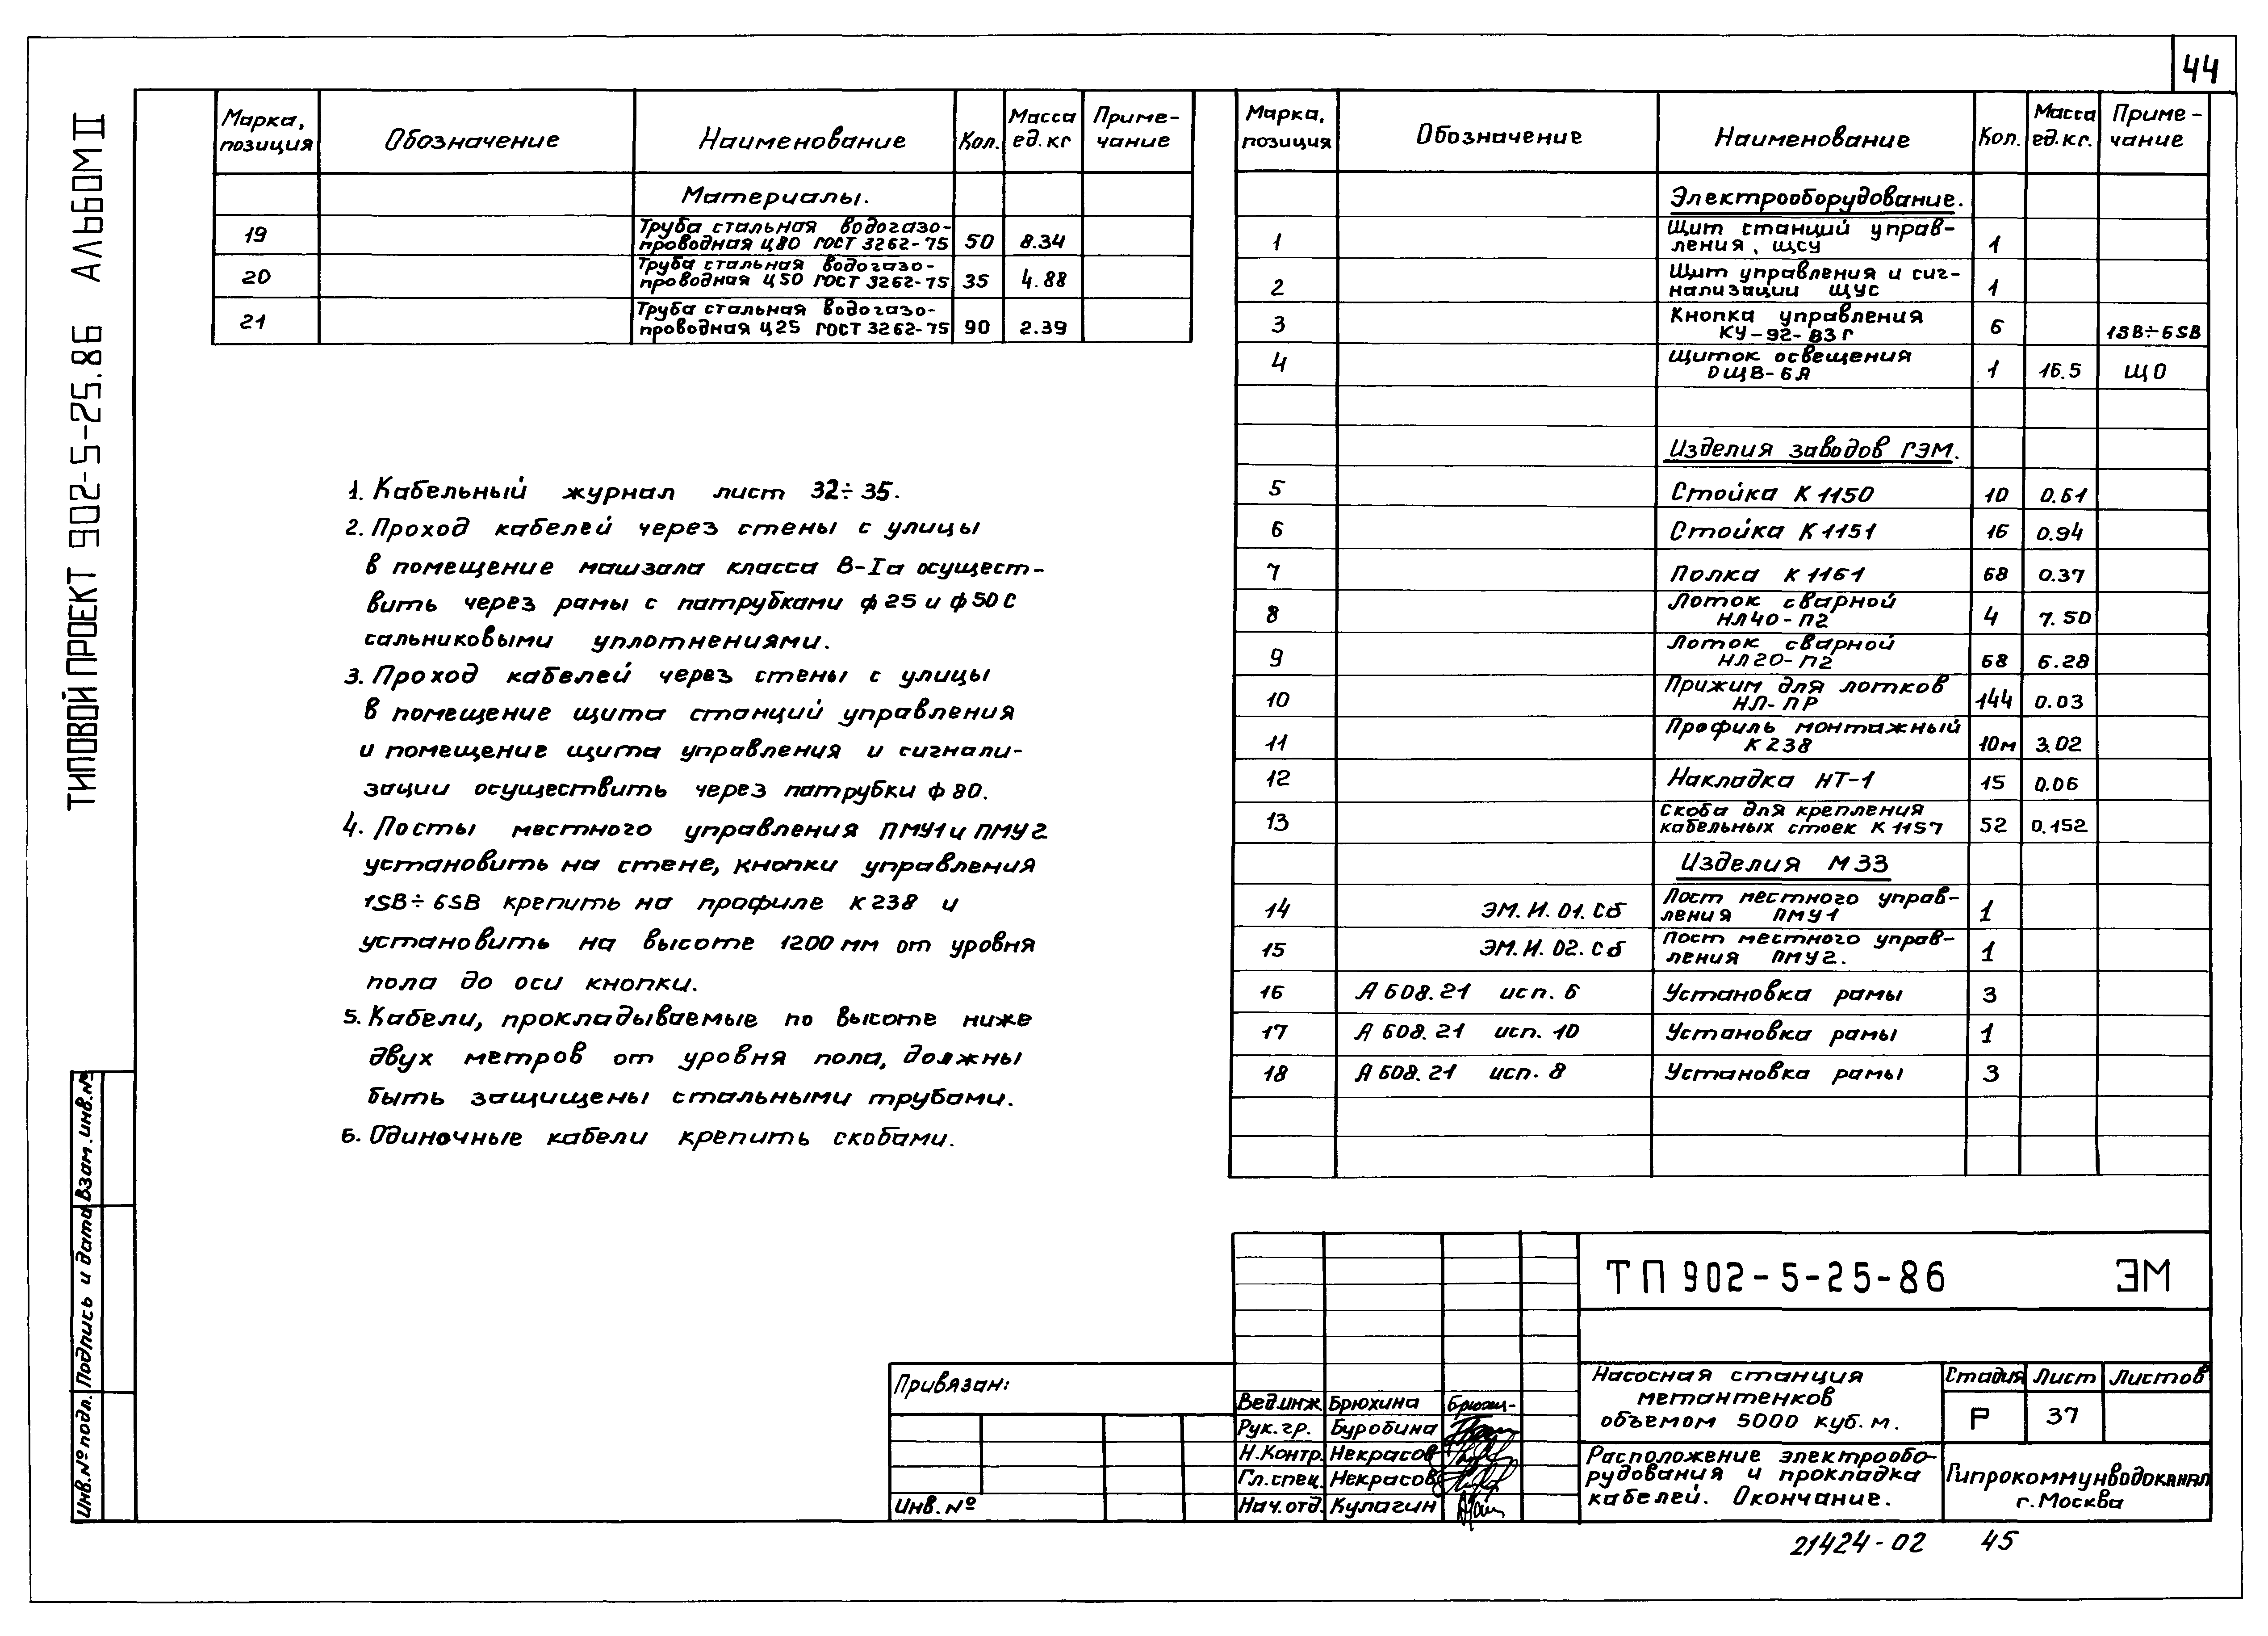 44
ТИПОВОЙ ПРОЕКТ 902-5-25.86 АЛЬБОМ II
Марка, позиция Обозначение Наименование Кол. Масса ед. кг Приме-чание
Материалы.
19 Труба стальная водогазо-
проводная Ц80 ГОСТ 3262-75 50 8.34
20 Труба стальная водогазо-
проводная Ц50 ГОСТ 3262-75 35 4.88
21 Труба стальная водогазо-
проводная Ц25 ГОСТ 3262-75 90 2.39
1. Кабельный журнал лист 32÷35.
2. Проход кабелей через стены с улицы
в помещение машзала класса В-Iа осущест-
вить через рамы с патрубками ф25 и ф50 с
сальниковыми уплотнениями.
3. Проход кабелей через стены с улицы
в помещение щита станций управления
и помещение щита управления и сигнали-
зации осуществить через патрубки ф80.
4. Посты местного управления ПМУ1 и ПМУ2
установить на стене, кнопки управления
1SB÷6SB крепить на профиле К238 и
установить на высоте 1200 мм от уровня
пола до оси кнопки.
5. Кабели, прокладываемые по высоте ниже
двух метров от уровня пола, должны
быть защищены стальными трубами.
6. Одиночные кабели крепить скобами.
Марка, позиция Обозначение Наименование Кол. Масса ед. кг. Приме-чание
Электрооборудование.
1 Щит станций управ-
ления, ЩСУ 1
2 Щит управления и сиг-
нализации ЩУС 1
3 Кнопка управления
КУ-92-ВЗГ 6 1SB÷6SB
4 Щиток освещения
ОЩВ-6А 1 16.5 ЩО
Изделия заводов ГЭМ.
5 Стойка К1150 10 0.61
6 Стойка К1151 16 0.94
7 Полка К1161 68 0.37
8 Лоток сварной
НЛ40-П2 4 7.50
9 Лоток сварной
НЛ20-П2 68 6.28
10 Прижим для лотков
НЛ-ПР 144 0.03
11 Профиль монтажный
К238 10м 3.02
12 Накладка НТ-1 15 0.06
13 Скоба для крепления
кабельных стоек К1157 52 0.152
Изделия МЗЗ
14 ЭМ.И.01.Сб Пост местного управ-
ления ПМУ1 1
15 ЭМ.И.02.Сб Пост местного управ-
ления ПМУ2. 1
16 А608.21 исп. 6 Установка рамы 3
17 А608.21 исп. 10 Установка рамы 1
18 А608.21 исп. 8 Установка рамы 3
Взам. инв. №
Подпись и дата
Инв. № подл.
Привязан:
Инв. №
ТП 902-5-25-86 ЭМ
Вед.инж. Брюхина
Рук. гр. Буробина
Н. Контр. Некрасов
Гл. спец. Некрасов
Нач. отд. Кулагин
Насосная станция
метантенков
объемом 5000 куб. м.
Стадия Лист Листов
Р 37
Расположение электрообо-
рудования и прокладка
кабелей. Окончание.
Гипрокоммунводоканал
г. Москва
21424-02 45